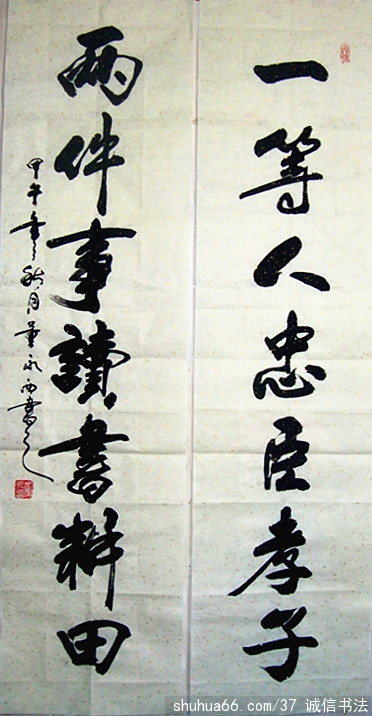 一等人忠臣孝子
兩件事讀書耕田
甲午年秋月董永西書之
shuhua66.com/37 诚信书法